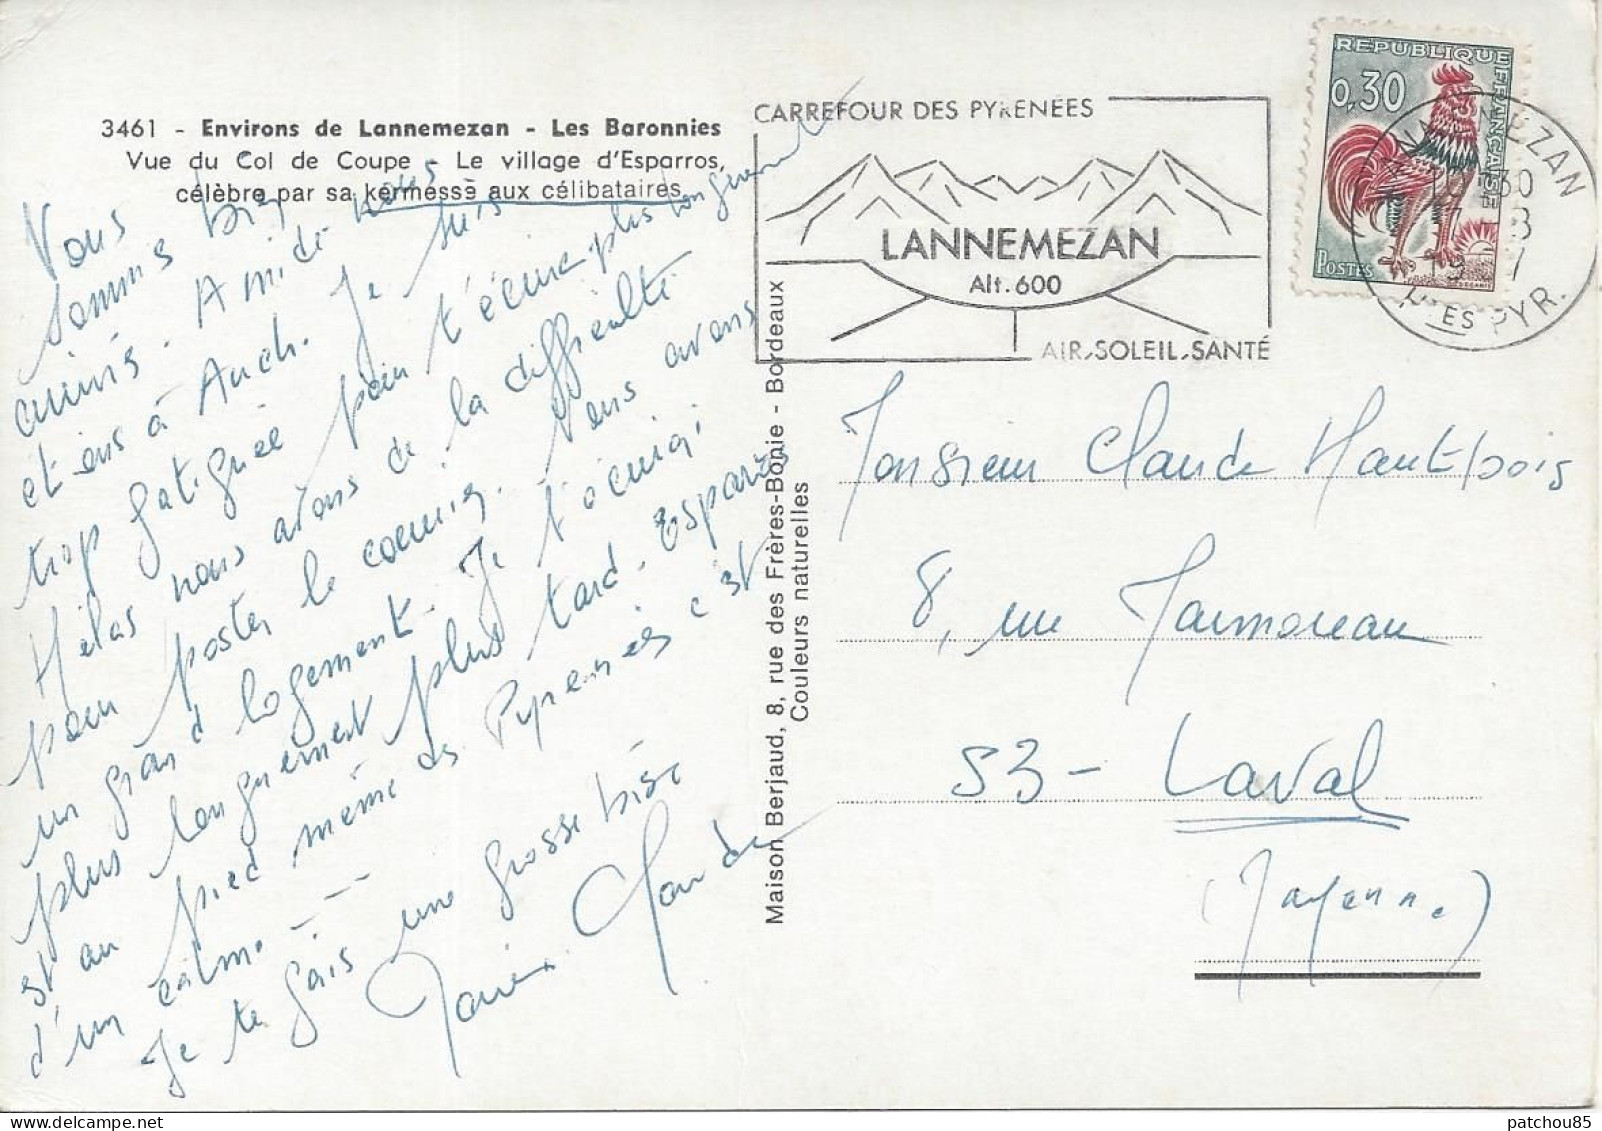 3461 - Environs de Lannemezan - Les Baronnies
Vue du Col de Coupe - Le village d'Esparros,
célèbre par sa kermesse aux célibataires.
CARREFOUR DES PYRENÉES
LANNEMEZAN
Alt.600
AIR-SOLEIL-SANTÉ
REPUBLIQUE FRANÇAISE
0,30
POSTES
LANNEMEZAN
Htes PYR.
Nous
sommes bien
arrivés. A midi nous
étions à Auch. Je suis
trop fatiguée pour t'écrire plus longuement
Hélas nous avons de la difficulté
pour poster le courrier. Nous avons
un grand logement. Je t'écrirai
plus longuement plus tard. Esparros
est au pied même des Pyrénées c'est
d'un calme ---
Je te fais une grosse bise
Marie Claude
Maison Berjaud, 8, rue des Frères-Bonie - Bordeaux
Couleurs naturelles
Monsieur Claude Hautbois
8, rue
53 - Laval
(Mayenne)
patchou85